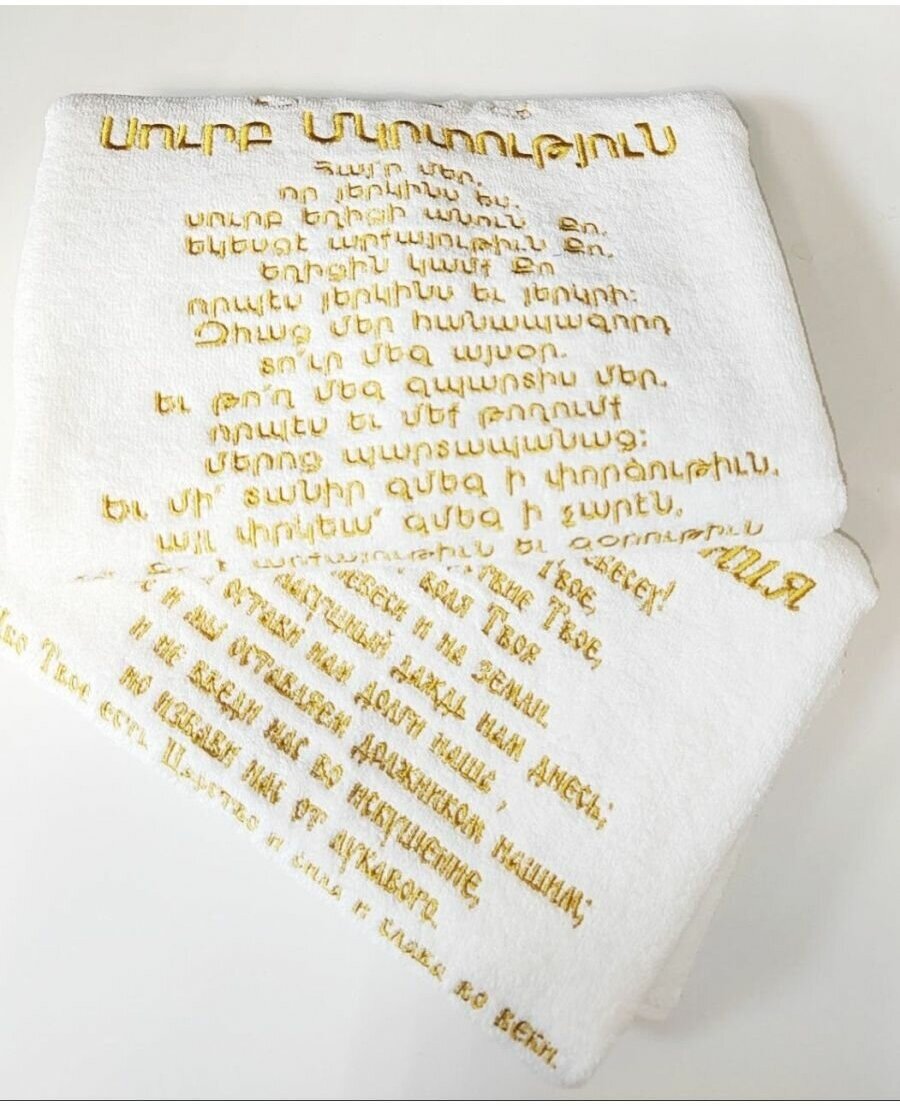 Սուրբ Մկրտություն
Հայր մեր,
որ յերկինս ես.
սուրբ եղիցի անուն Քո.
եկեսցէ արքայութիւն Քո.
եղիցին կամք Քո
որպէս յերկինս եւ յերկրի:
Զհաց մեր հանապազորդ
տո՛ւր մեզ այսօր.
եւ թո՛ղ մեզ զպարտիս մեր.
որպէս եւ մեք թողումք
մերոց պարտապանաց:
եւ մի՛ տանիր զմեզ ի փորձութիւն.
այլ փրկեա՛ զմեզ ի չարէն.
արքայութիւն եւ զօրութիւն
Твое,
Твое,
воля Твоя
и на земли.
даждь нам днесь;
остави нам долги наша,
и мы оставляем должником нашим;
и не введи нас во искушение,
но избави нас от лукаваго.
Твое есть Царство и сила и слава во веки.